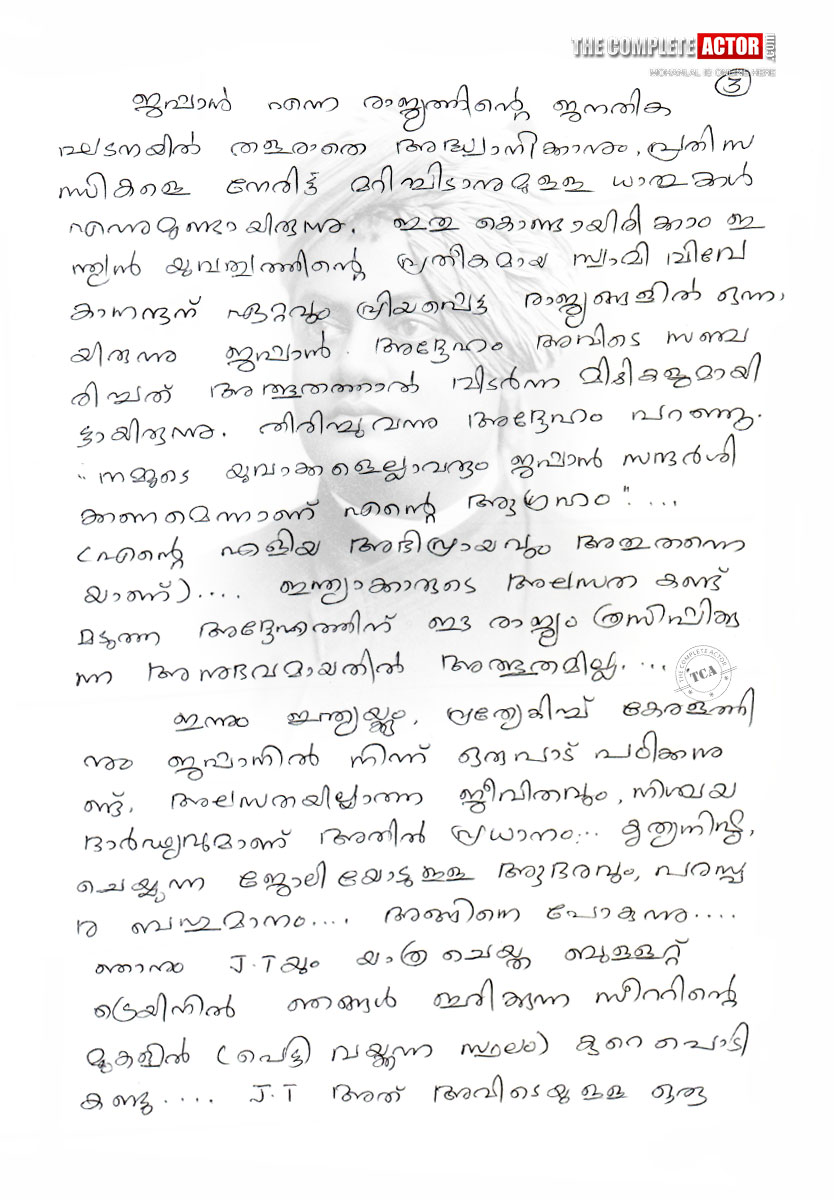 THE COMPLETE ACTOR .com
MOHANLAL IS ONLINE HERE
3
ജപ്പാൻ എന്ന രാജ്യത്തിന്റെ ജനതിക
ഘടനയിൽ തളരാതെ അദ്ധ്വാനിക്കാനും, പ്രതിസ
ന്ധികളെ നേരിട്ട് മറിച്ചിടാനുമുള്ള ധാതുക്കൾ
എന്നുമുണ്ടായിരുന്നു. ഇതു കൊണ്ടായിരിക്കാം ഇ
ന്ത്യൻ യുവത്വത്തിന്റെ പ്രതീകമായ സ്വാമി വിവേ
കാനന്ദന് ഏറ്റവും പ്രിയപ്പെട്ട രാജ്യങ്ങളിൽ ഒന്നാ
യിരുന്നു ജപ്പാൻ. അദ്ദേഹം അവിടെ സഞ്ച
രിച്ചത് അത്ഭുതത്താൽ വിടർന്ന മിഴികളുമായി
ട്ടായിരുന്നു. തിരിച്ചുവന്നു അദ്ദേഹം പറഞ്ഞു.
"നമ്മുടെ യുവാക്കളെല്ലാവരും ജപ്പാൻ സന്ദർശി
ക്കണമെന്നാണ് എന്റെ ആഗ്രഹം"....
(എന്റെ എളിയ അഭിപ്രായവും അതുതന്നെ
യാണ്).... ഇന്ത്യാക്കാരുടെ അലസത കണ്ട്
മടുത്ത അദ്ദേഹത്തിന് ഈ രാജ്യം ത്രസിപ്പിക്കു
ന്ന അനുഭവമായതിൽ അത്ഭുതമില്ല....
THE COMPLETE ACTOR
TCA
ഇന്നും ഇന്ത്യയ്ക്കും, പ്രത്യേകിച്ച് കേരളത്തി
നും ജപ്പാനിൽ നിന്ന് ഒരുപാട് പഠിക്കാനു
ണ്ട്. അലസതയില്ലാത്ത ജീവിതവും, നിശ്ചയ
ദാർഢ്യവുമാണ് അതിൽ പ്രധാനം... കൃത്യനിഷ്ഠ,
ചെയ്യുന്ന ജോലിയോടു ഉള്ള ആദരവും, പരസ്പ
ര ബഹുമാനം.... അങ്ങിനെ പോകുന്നു....
ഞാനും J.T യും യാത്ര ചെയ്ത ബുള്ളറ്റ്
ട്രെയിനിൽ ഞങ്ങൾ ഇരിക്കുന്ന സീററിന്റെ
മുകളിൽ (പെട്ടി വയ്ക്കുന്ന സ്ഥലം) കുറെ പൊടി
കണ്ടു.... J.T അത് അവിടെയുള്ള ഒരു